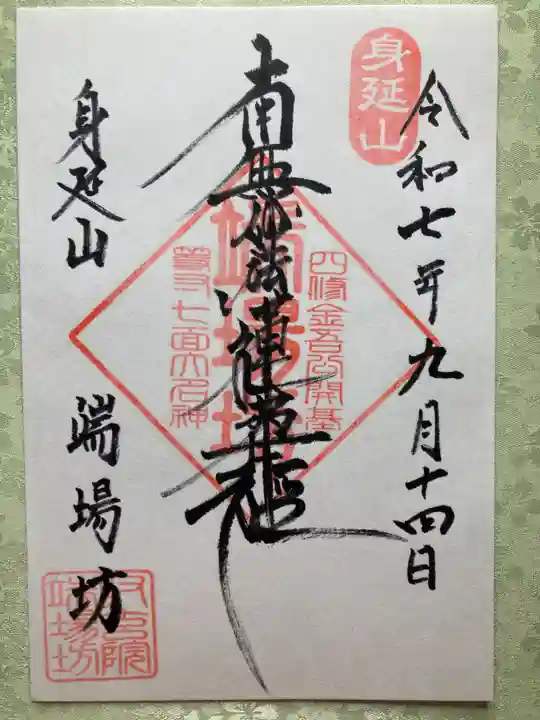 身延山
令和七年九月十四日
四條金吾公開基
南無妙法蓮華経
端場坊
七面大明神
身延山 端場坊
端場坊